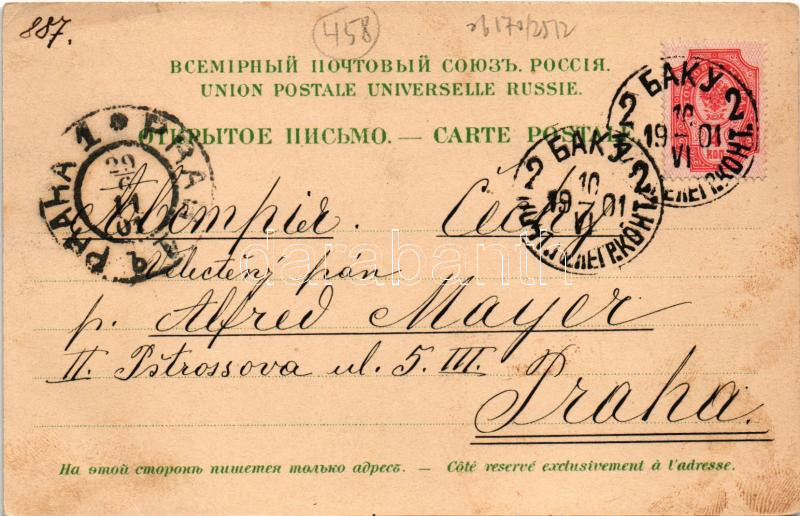 887.
458
ВСЕМІРНЫЙ ПОЧТОВЫЙ СОЮЗЪ. РОССІЯ.
UNION POSTALE UNIVERSELLE RUSSIE.
ОТКРЫТОЕ ПИСЬМО. — CARTE POSTALE.
2 БАКУ 2
10
19 01
VI
2 БАКУ 2
10
19 01
VI
PRAHA 1
Čechy
Velectěný pán
p. Alfred Mayer
II. Pštrossova ul. 5. III.
Praha.
darabanth
На этой сторонѣ пишется только адресъ. — Côté reservé exclusivement à l'adresse.